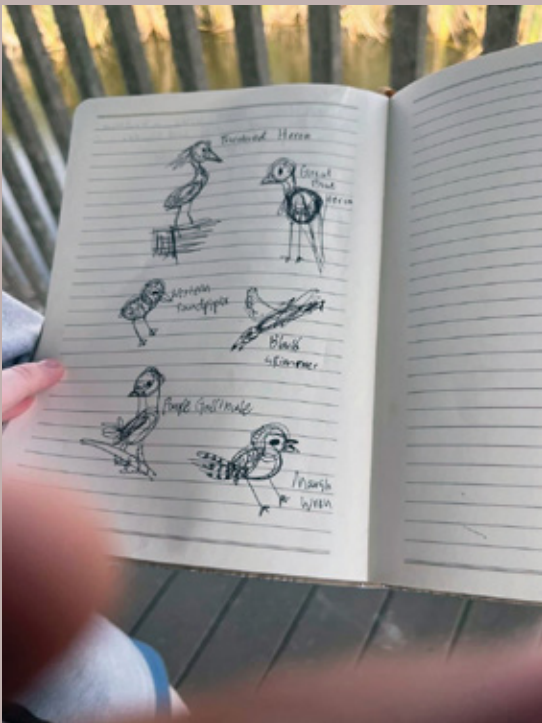 Heron
Great
Blue
Heron
Western
Sandpiper
Black
skimmer
Purple Gallinule
Marsh
Wren